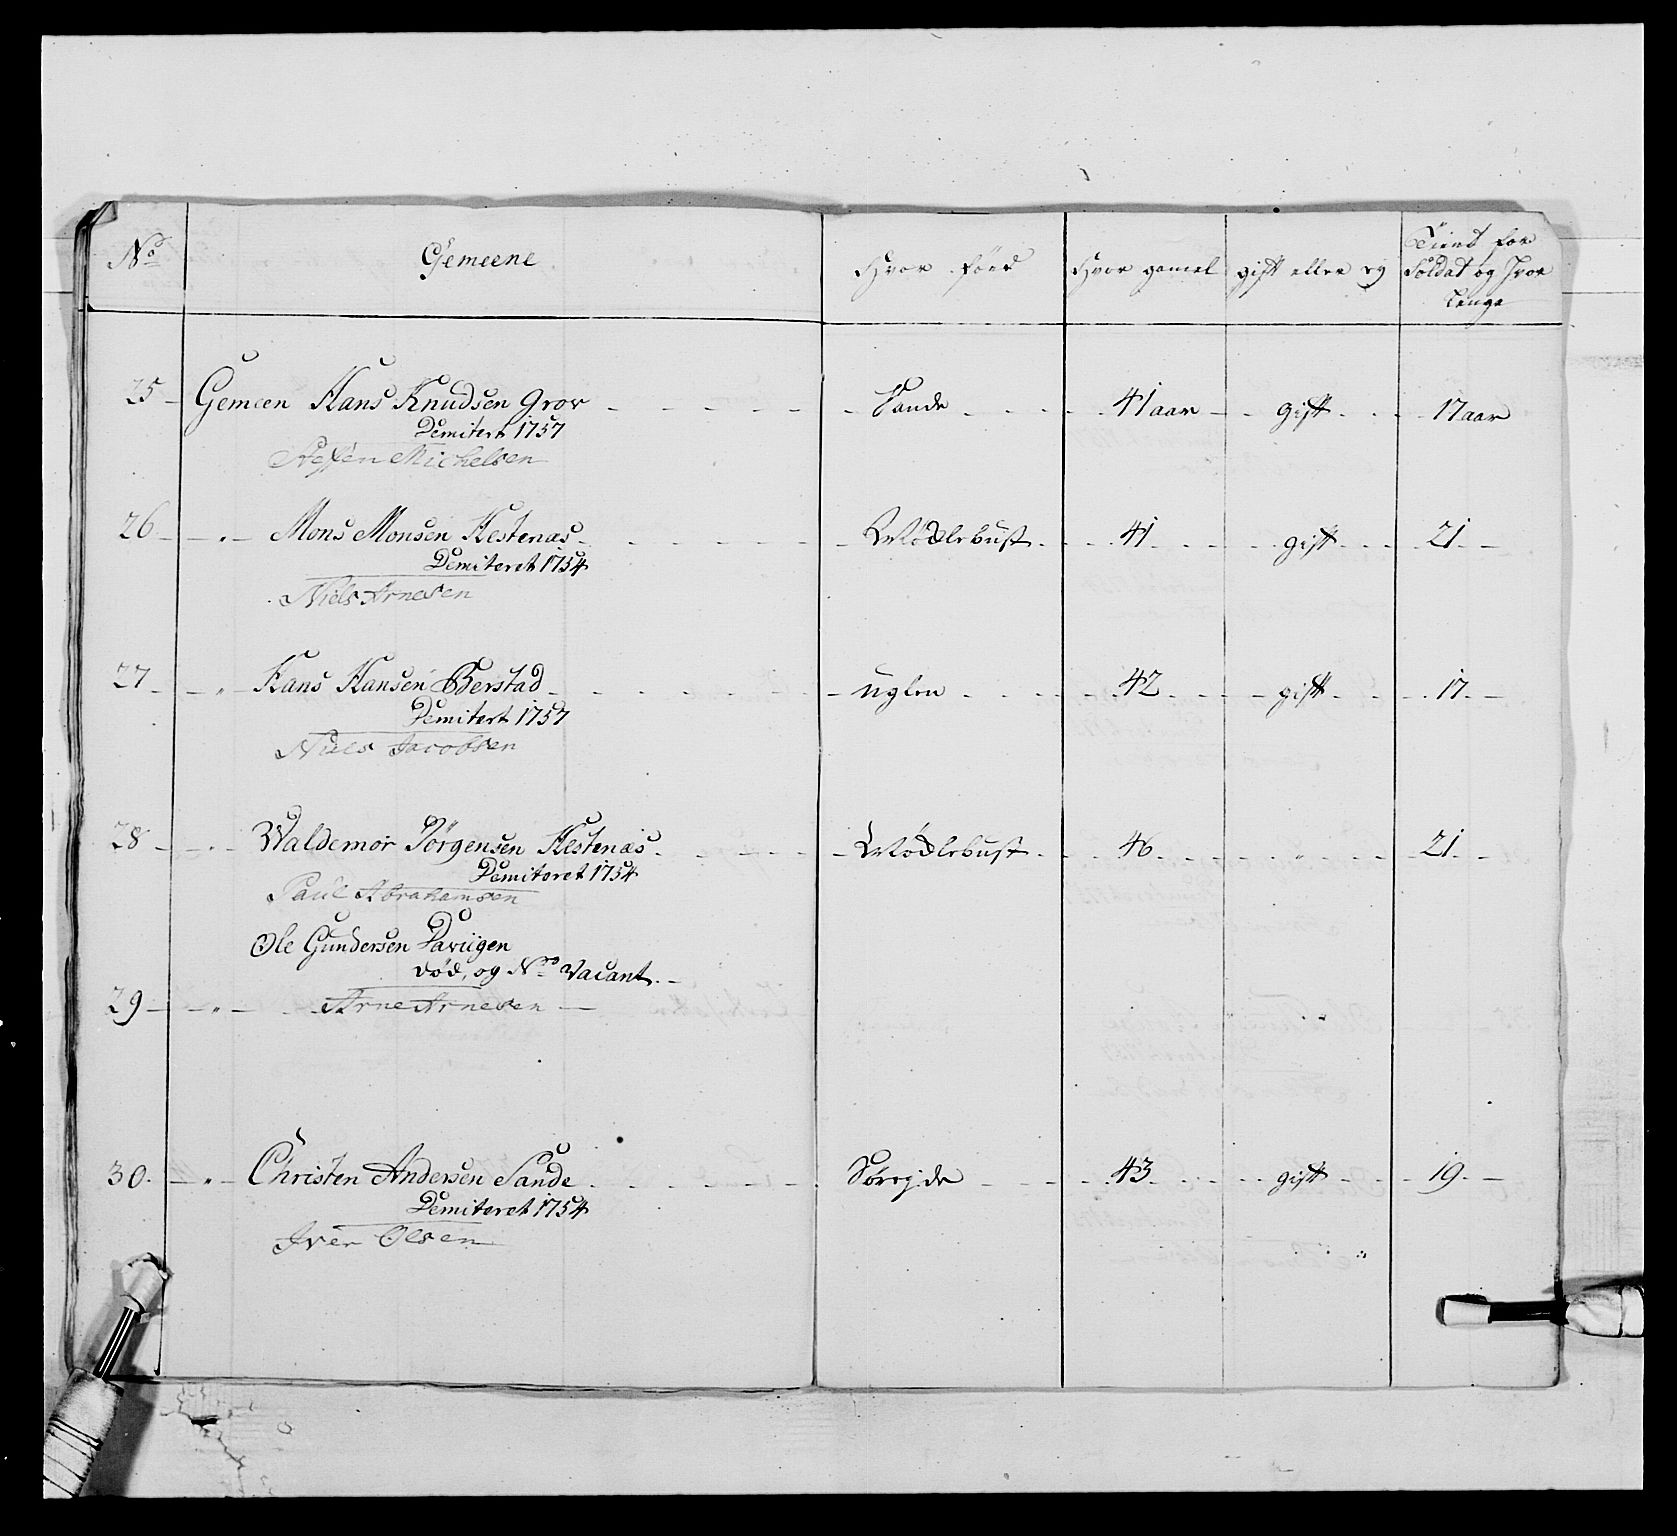 No Gemeene Hvor född Hvor gamel gift eller ey Tient for
Soldat og Hvor
Lenge
25 Gemeen Hans Knudsen Grov Sande 41 aar gift 17 aar
Demitert 1757
Steffen Michelsen
26 " Mons Monsen Hestenæs Mödlebust 41 gift 21
Demiteret 1754
Niels Arnesen
27 " Hans Hansen Berstad Uglen 42 gift 17
Demitert 1757
Niels Jacobsen
28 Waldemor Jörgensen Hestenæs Mödlebust 46 " 21
Demiteret 1754
Paul Abrahamsen
Ole Gundersen
död, og No Vacant
29 " Arne Arnesen
30 " Christen Andersen Sande 43 gift 19
Demiteret 1754
Iver Olsen